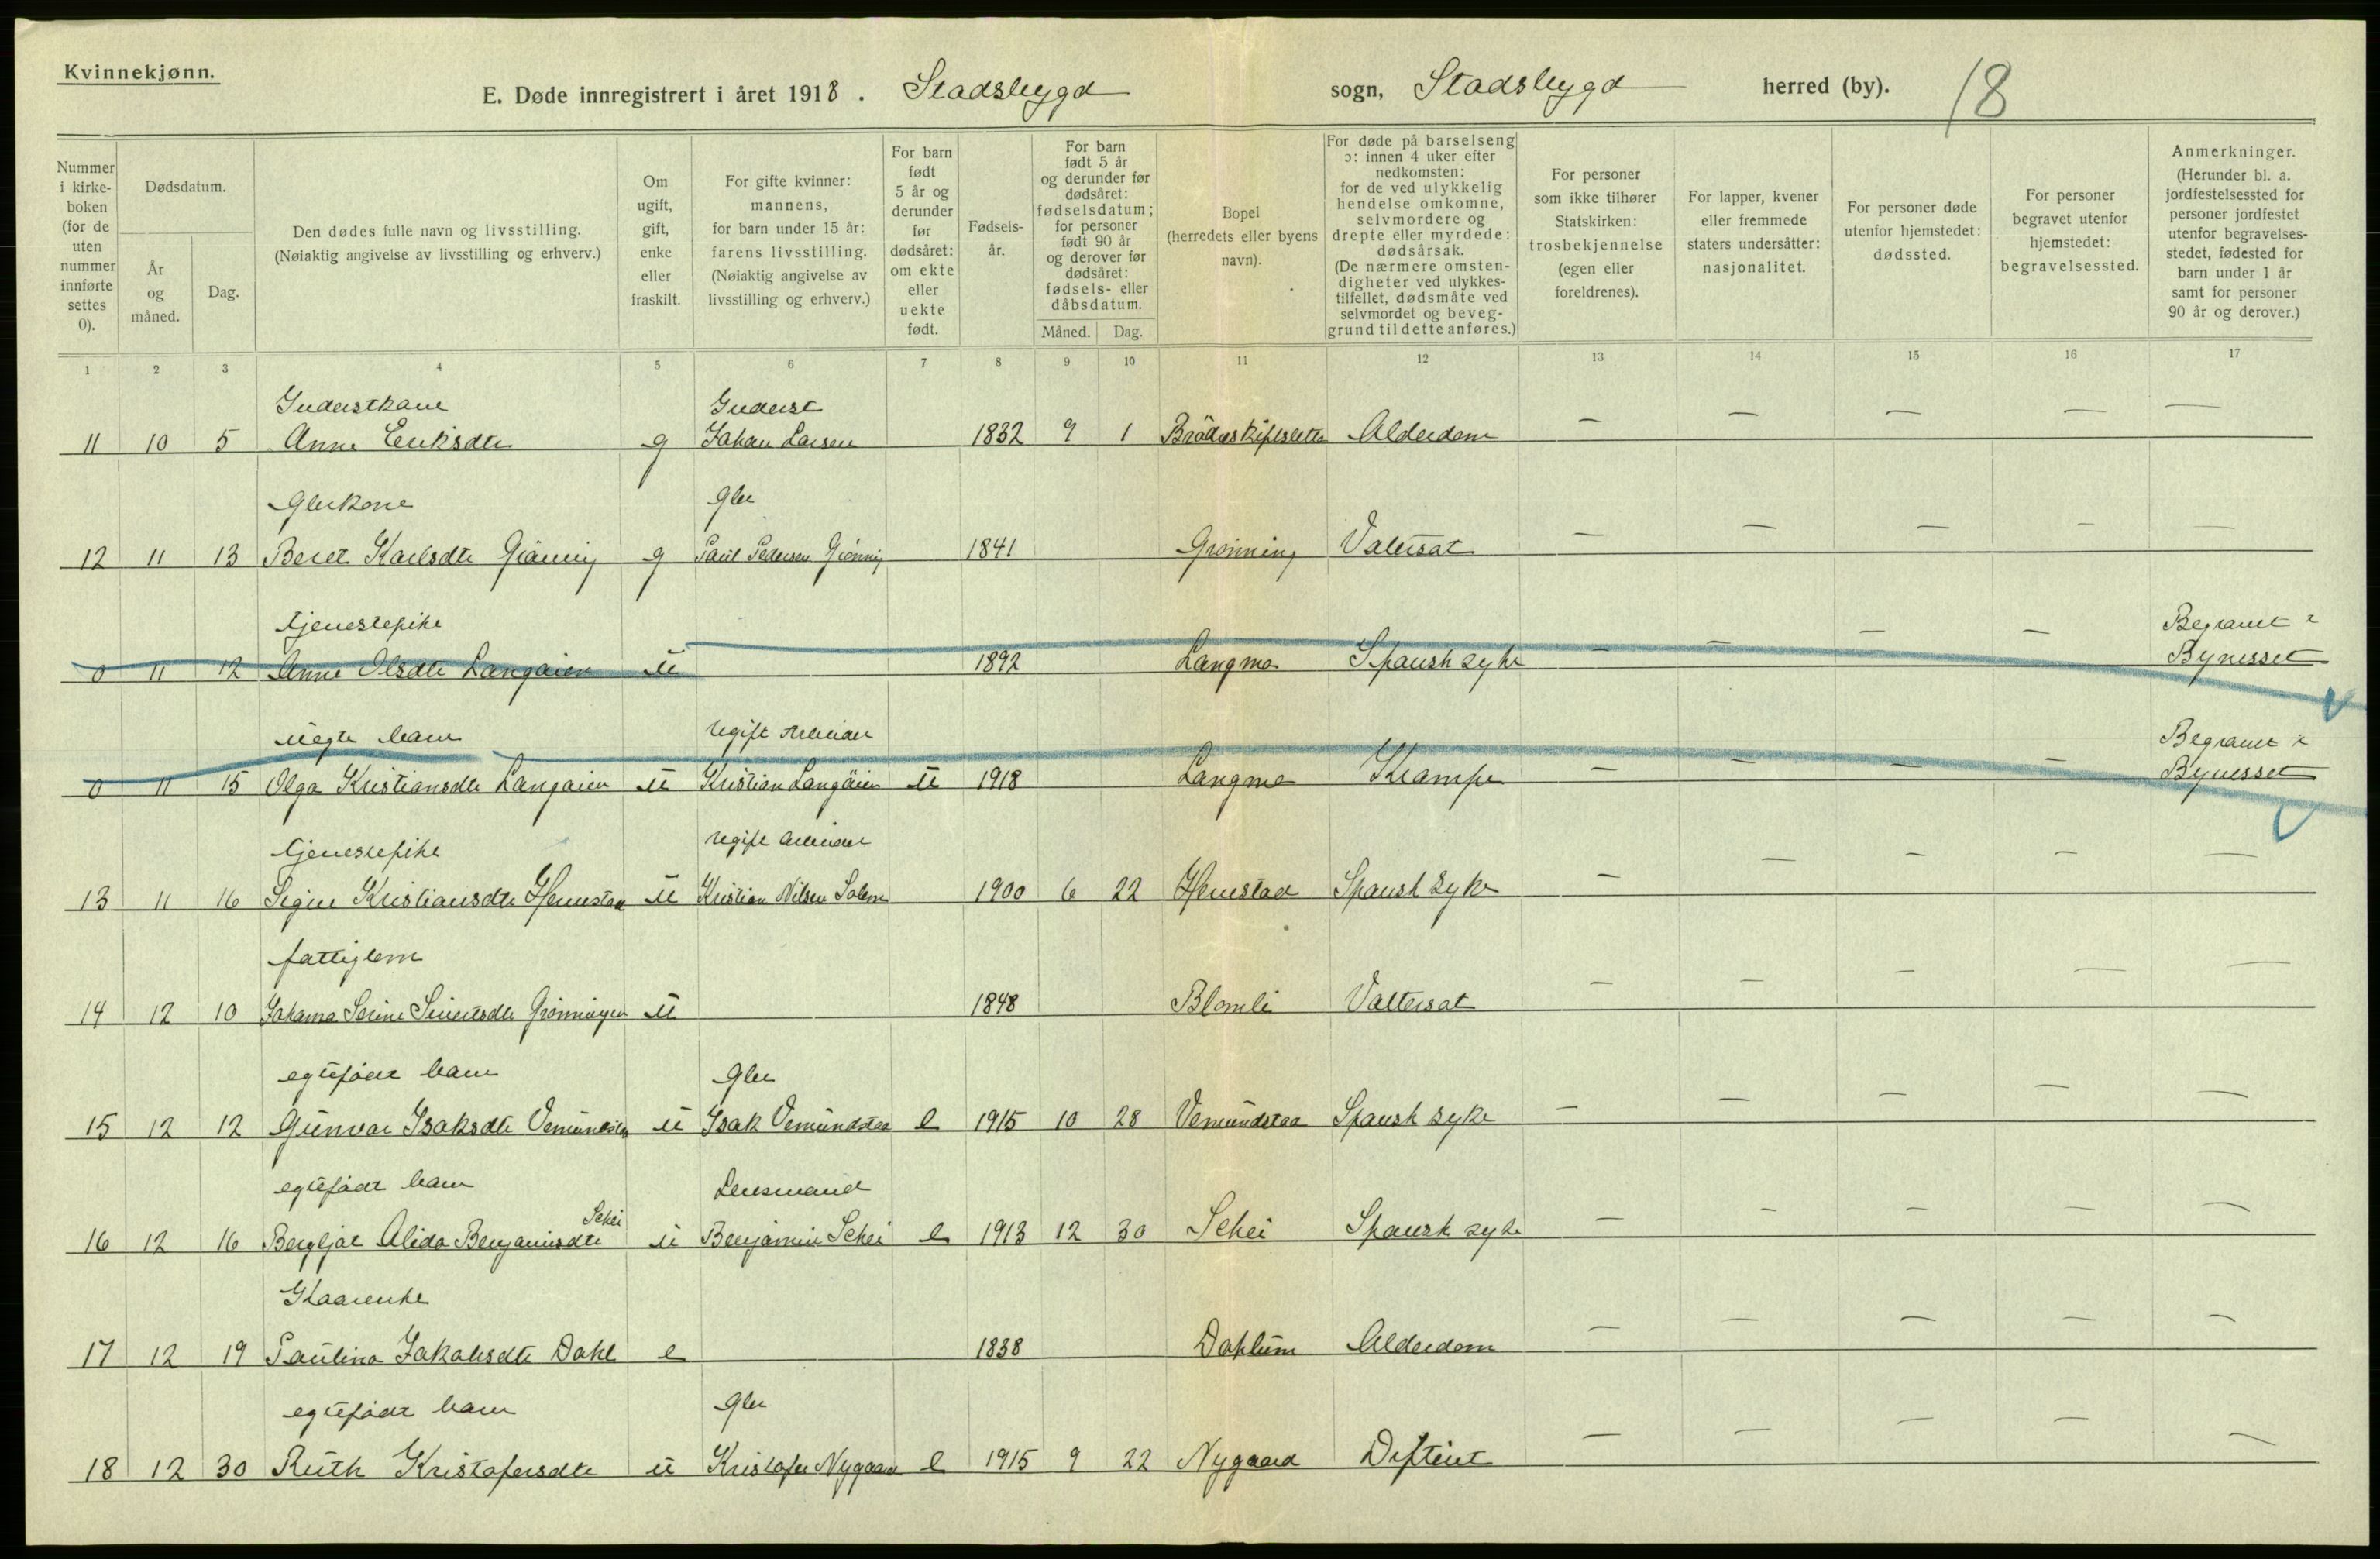 Kvinnekjønn.
E. Døde innregistrert i året 1918. Stadsbygd sogn, Stadsbygd herred (by). 18
Nummer i kirke-boken (for de uten nummer innførte settes 0).
Dødsdatum.
År og måned.
Dag.
Den dødes fulle navn og livsstilling.
(Nøiaktig angivelse av livsstilling og erhverv.)
Om ugift, gift, enke eller fraskilt.
For gifte kvinner: mannens, for barn under 15 år: farens livsstilling.
(Nøiaktig angivelse av livsstilling og erhverv.)
For barn født 5 år og derunder før dødsåret: om ekte eller uekte født.
Fødsels-år.
For barn født 5 år og derunder før dødsåret: fødselsdatum; for personer født 90 år og derover før dødsåret: fødsels- eller dåbsdatum.
Måned. Dag.
Bopel (herredets eller byens navn).
For døde på barselseng ɔ: innen 4 uker efter nedkomsten: for de ved ulykkelig hendelse omkomne, selvmordere og drepte eller myrdede: dødsårsak.
(De nærmere omsten-digheter ved ulykkes-tilfellet, dødsmåte ved selvmordet og beveg-grund til dette anføres.)
For personer som ikke tilhører Statskirken: trosbekjennelse (egen eller foreldrenes).
For lapper, kvener eller fremmede staters undersåtter: nasjonalitet.
For personer døde utenfor hjemstedet: dødssted.
For personer begravet utenfor hjemstedet: begravelsessted.
Anmerkninger.
(Herunder bl. a. jordfestelsessted for personer jordfestet utenfor begravelses-stedet, fødested for barn under 1 år samt for personer 90 år og derover.)
1 2 3 4 5 6 7 8 9 10 11 12 13 14 15 16 17
Inderstkone Inderst
11 10 5 Anne Eriksdtr g Johan Larsen 1832 9 1 Alderdom — — — — —
Gbrkone Gbr
12 11 13 Beret Karlsdtr Grönning g Paul Pedersen Grönning 1841 Grönning Vatersot — — — — —
tjenestepike Begravet i
0 11 12 Anne Olsdtr Langaien u 1892 Langmo Spansk syke — — — — Bynesset
uegte barn ugift Arbeider Begravet i
0 11 15 Olga Kristiansdtr Langaien u Kristian Langaien u 1918 Langmo Krampe — — — — Bynesset
tjenestepike ugift arbeider
13 11 16 Kristiansdtr Hemstad u Kristian Nilsen Solem 1900 6 22 Hemstad Spansk syke — — — — —
fattiglem
14 12 10 Johanna Serine Sivertsdtr Grönningen u 1848 Blomli Vattersot — — — — —
egtefödt barn Gbr
15 12 12 Gunvor Isaksdtr Vemundstad u Isak Vemundstad e 1915 10 28 Vemundstad Spansk syke — — — — —
egtefödt barn Lensmand
16 12 16 Bergljot Alida Benjaminsdtr Schei u Benjamin Schei e 1913 12 30 Schei Spansk syke — — — — —
Kaarenke
17 12 19 Paulina Jakobsdtr Dahl e 1838 Dahlum Alderdom — — — — —
egtefödt barn Gbr
18 12 30 Ruth Kristofersdtr u Kristofer Nygaard e 1915 9 22 Nygaard Difterit — — — — —